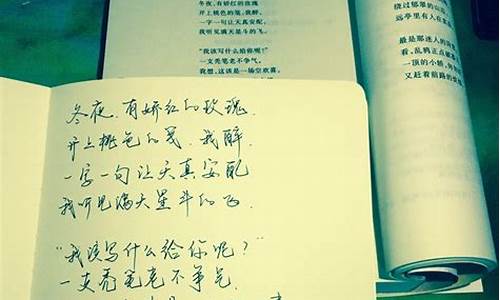 冬夜,有娇红的玫瑰
开上桃色的笺,我醉,
一字一句让天真安配,
我听见满天星斗的飞。
“我该写什么给你呢?”
一支秃笔老不争气。
我想,这该是一场空欢喜。
绕过郁翠的山
远亭里有人在
最是那迷人的
看,乱鸦正点
一顶的小轿,
又赶着前路的
冬夜,有娇红的玫瑰,
开上桃色的笺,我醉,
一字一句让天真安配
我听见满天星斗的飞,
“我该写什么给你呢?”
一支秃笔老不争气,